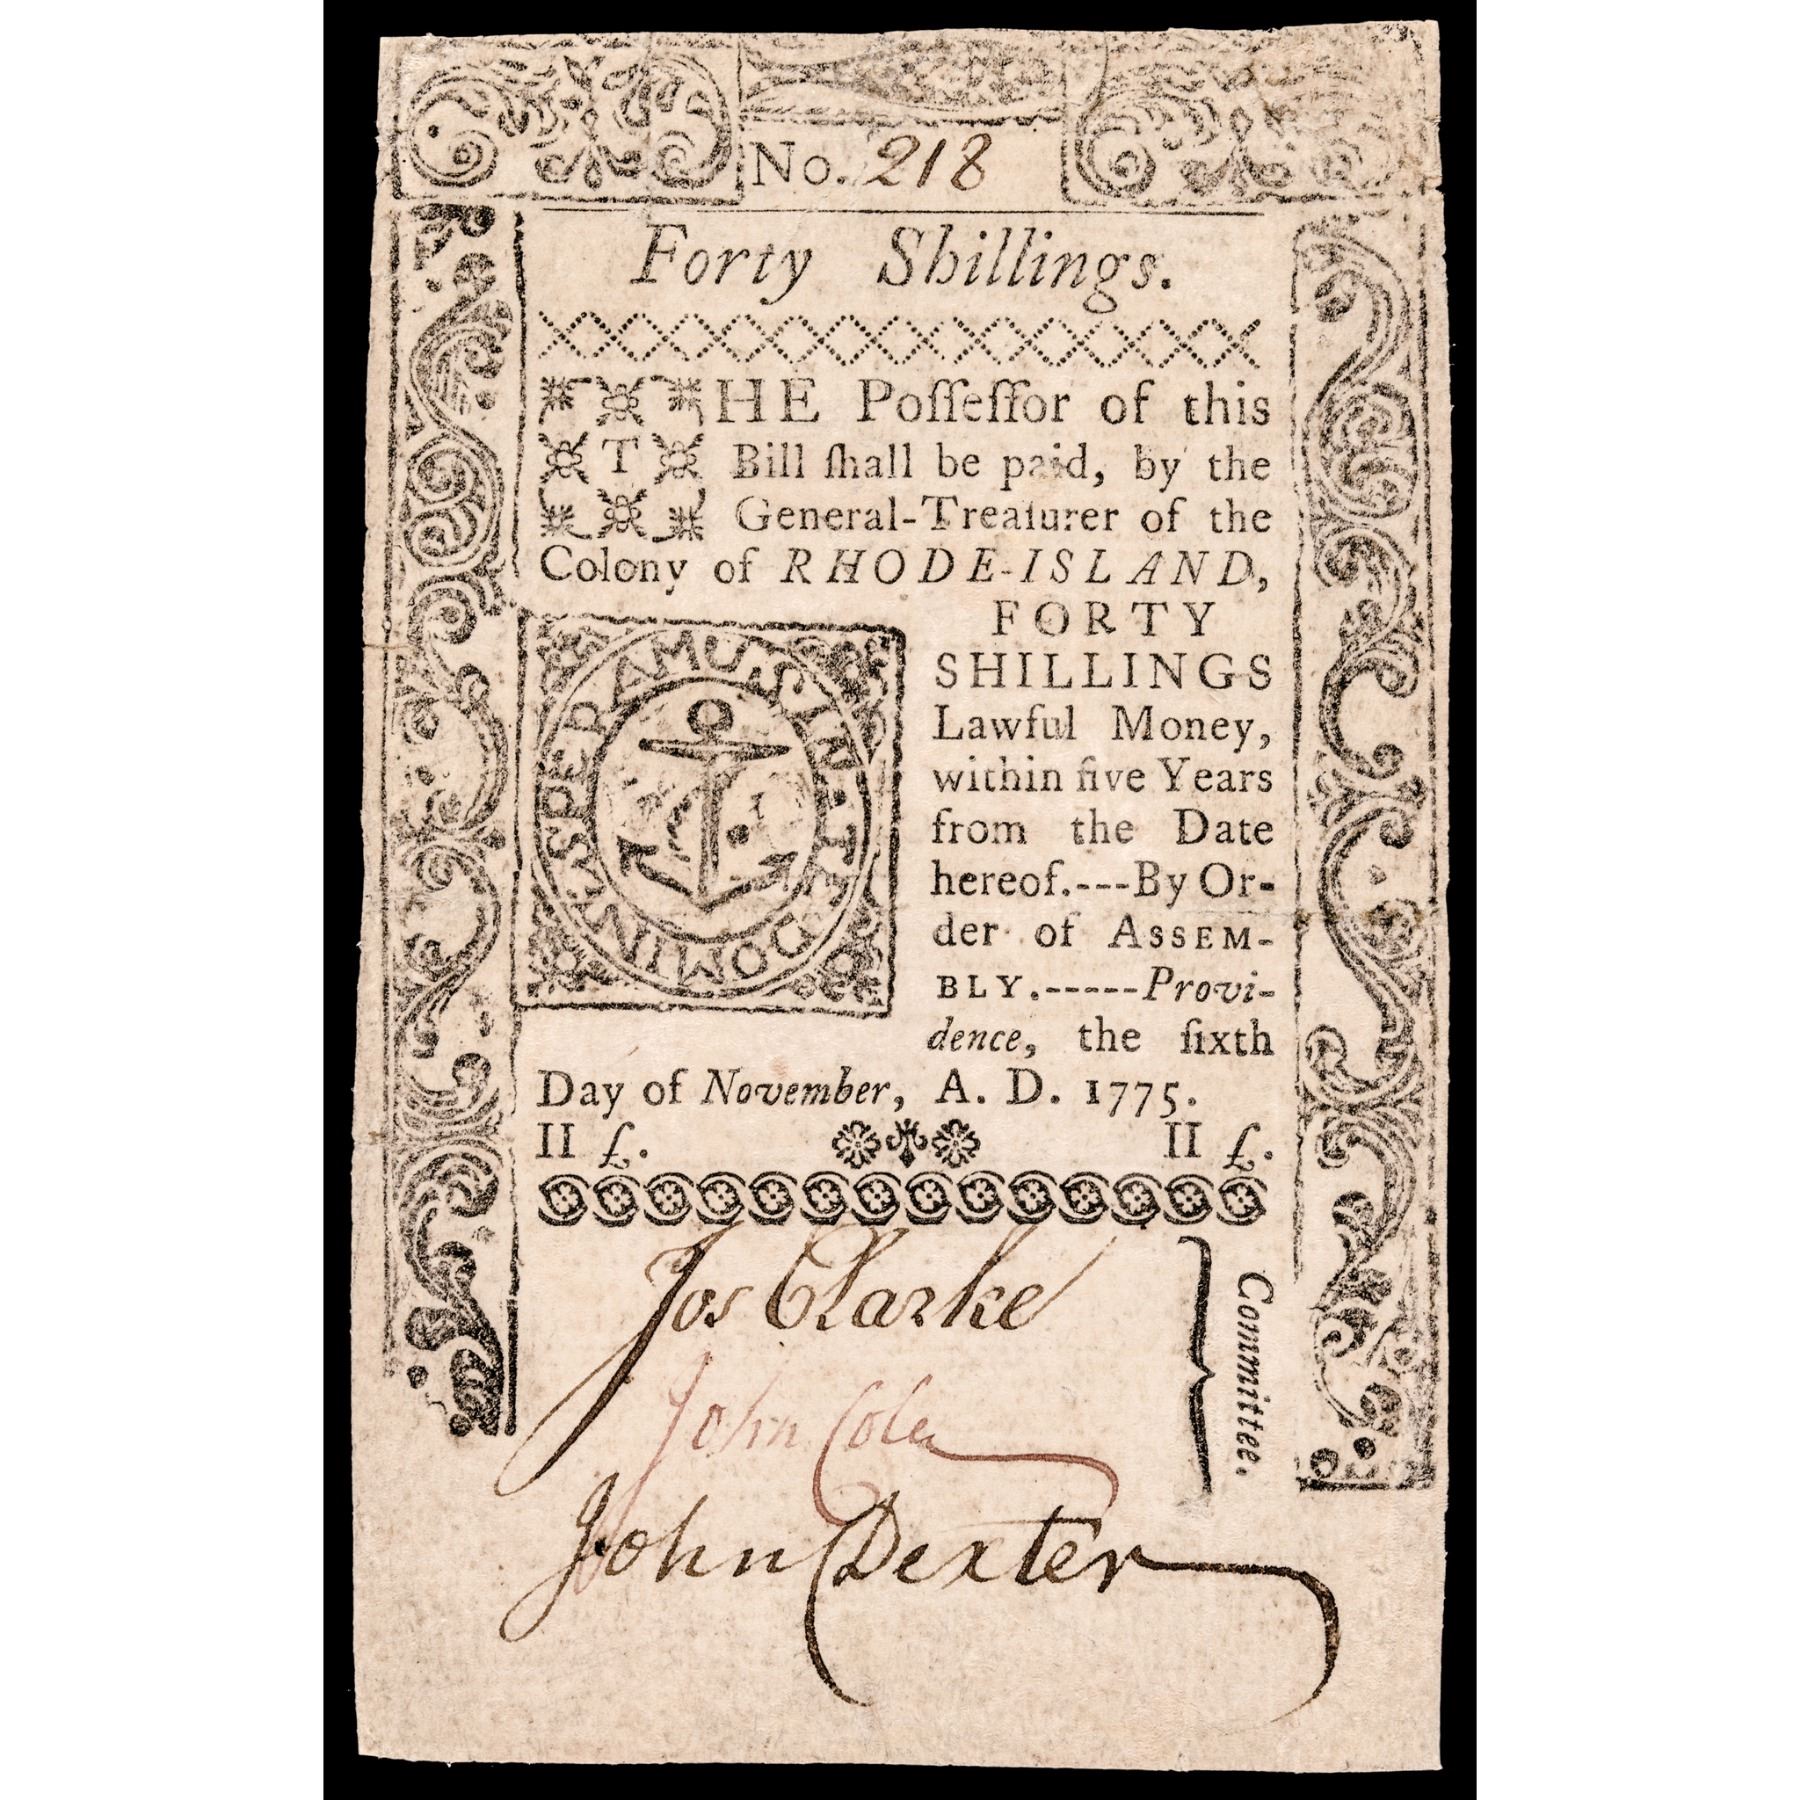 No. 218
Forty Shillings.
THE Poſſeſſor of this
Bill ſhall be paid, by the
General-Treaſurer of the
Colony of RHODE-ISLAND,
FORTY
SHILLINGS
Lawful Money,
within five Years
from the Date
hereof.---By Or-
der of ASSEM-
BLY.-----Provi-
dence, the ſixth
Day of November, A. D. 1775.
II £. II £.
IN TE DOMINE SPERAMUS
Jos Clarke
John Cole
John Dexter
Committee.